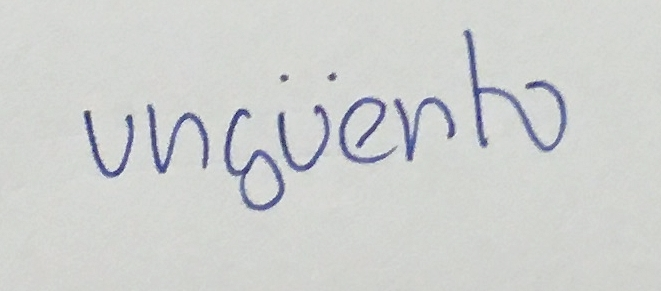 ungüento